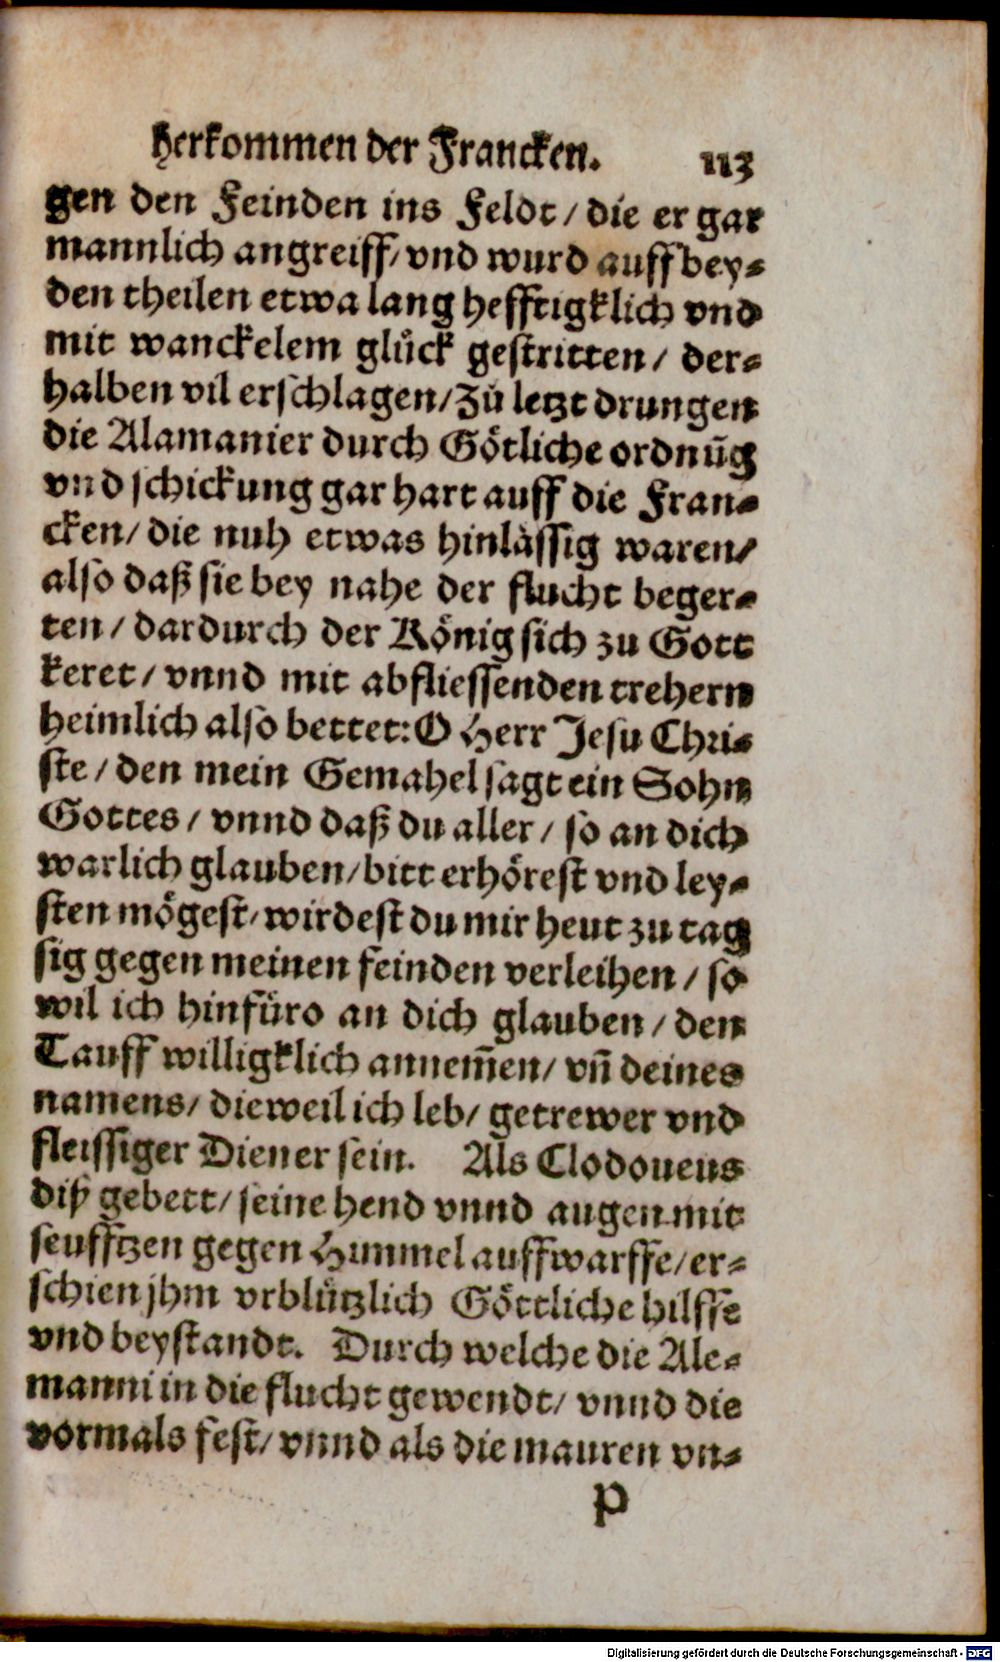 Herkommen der Francken. 113
gen den Feinden ins Feldt / die er gar
mannlich angreiff / vnd wurd auff bey-
den theilen etwa lang hefftigklich vnd
mit wanckelem glůck gestritten / der-
halben vil erschlagen / Zů letzt drungen
die Alamanier durch Götliche ordnūg
vnd schickung gar hart auff die Fran-
cken / die nuh etwas hinlässig waren /
also daß sie bey nahe der flucht beger-
ten / dardurch der König sich zu Gott
keret / vnnd mit abfliessenden trehern
heimlich also bettet: O Herr Jesu Chri-
ste / den mein Gemahel sagt ein Sohn
Gottes / vnnd daß du aller / so an dich
warlich glauben / bitt erhörest vnd ley-
sten mögest / wirdest du mir heut zu tag
sig gegen meinen feinden verleihen / so
wil ich hinfüro an dich glauben / den
Tauff willigklich annem̄en / vn̄ deines
namens / dieweil ich leb / getrewer vnd
fleissiger Diener sein. Als Clodoueus
diß gebett / seine hend vnnd augen mit
seufftzen gegen Himmel auffwarffe / er-
schien jhm vrblützlich Göttliche hilffe
vnd beystandt. Durch welche die Ale-
manni in die flucht gewendt / vnnd die
vormals fest / vnnd als die mauren vn-
P
Digitalisierung gefördert durch die Deutsche Forschungsgemeinschaft - DFG